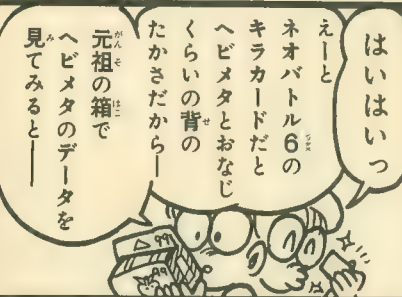 はいはいっ
えーと
ネオバトル6の
キラカードだと
ヘビメタとおなじ
くらいの背の
たかさだから―
元祖の箱で
ヘビメタのデータを
見てみると――